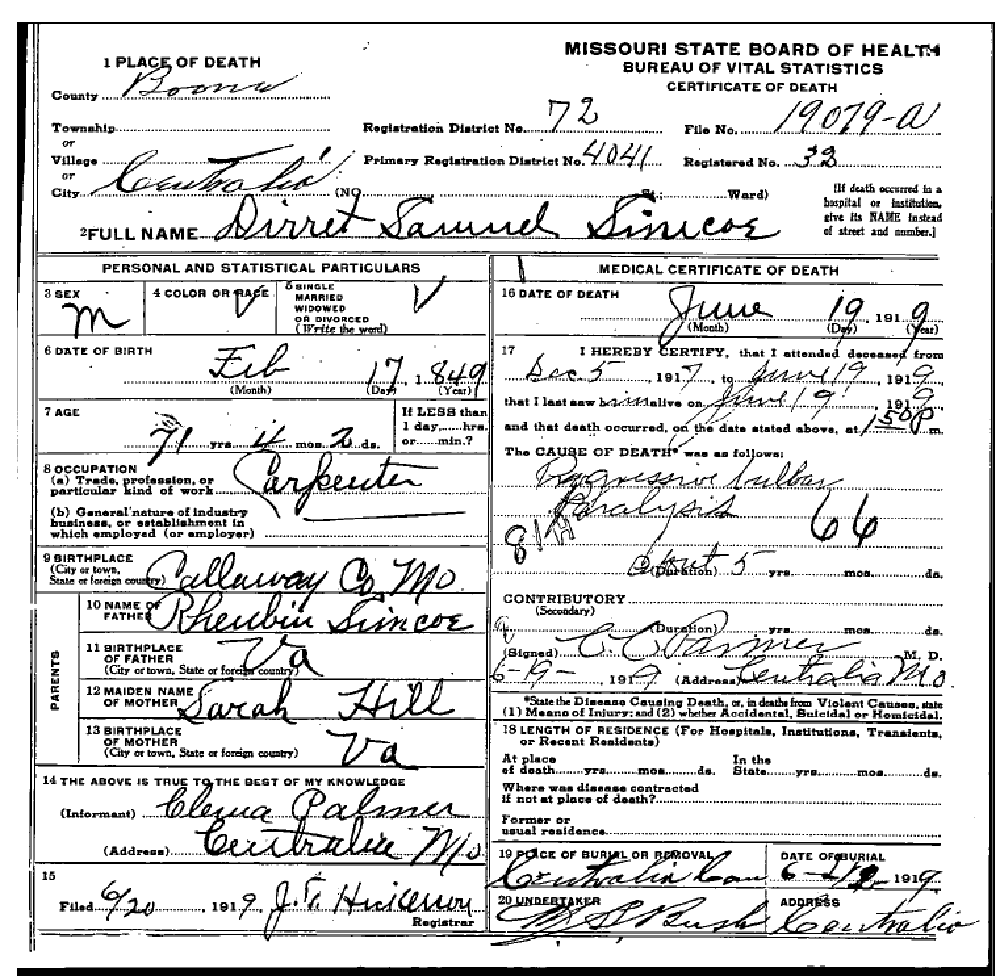 MISSOURI STATE BOARD OF HEALTH
BUREAU OF VITAL STATISTICS
CERTIFICATE OF DEATH
1 PLACE OF DEATH
County Boone
Township
or
Village
or
City Centralia (NO. St.; Ward)
Registration District No. 72 File No. 19079-a
Primary Registration District No. 4041 Registered No. 32
[If death occurred in a
hospital or institution,
give its NAME instead
of street and number.]
2 FULL NAME Dirret Samuel Simcoe
PERSONAL AND STATISTICAL PARTICULARS
3 SEX M
4 COLOR OR RACE
5 SINGLE
MARRIED
WIDOWED
OR DIVORCED
(Write the word)
6 DATE OF BIRTH
Feb 17, 1849
(Month) (Day) (Year)
7 AGE
71 yrs. 4 mos. 2 ds.
If LESS than
1 day,....hrs.
or.....min.?
8 OCCUPATION
(a) Trade, profession, or
particular kind of work Carpenter
(b) General nature of industry
business, or establishment in
which employed (or employer)
9 BIRTHPLACE
(City or town,
State or foreign country) Callaway Co Mo.
PARENTS
10 NAME OF
FATHER Rheubin Simcoe
11 BIRTHPLACE
OF FATHER
(City or town, State or foreign country) Va
12 MAIDEN NAME
OF MOTHER Sarah Hill
13 BIRTHPLACE
OF MOTHER
(City or town, State or foreign country) Va
14 THE ABOVE IS TRUE TO THE BEST OF MY KNOWLEDGE
(Informant) Clema Palmer
(Address) Centralia Mo
15
Filed 6/20, 1919 J. T. Hickerson
Registrar
MEDICAL CERTIFICATE OF DEATH
16 DATE OF DEATH
June 19, 1919
(Month) (Day) (Year)
17 I HEREBY CERTIFY, that I attended deceased from
Dec 5, 1917, to June 19, 1919
that I last saw him alive on June 19, 1919
and that death occurred, on the date stated above, at 150P m.
The CAUSE OF DEATH* was as follows:
Progressive bulbar
Paralysis
66
about 5
(Duration) yrs. mos. ds.
CONTRIBUTORY
(Secondary)
(Duration) yrs. mos. ds.
(Signed) C. C. Palmer M. D.
6-19-, 1919 (Address) Centralia Mo.
*State the Disease Causing Death, or, in deaths from Violent Causes, state
(1) Means of Injury; and (2) whether Accidental, Suicidal or Homicidal.
18 LENGTH OF RESIDENCE (For Hospitals, Institutions, Transients,
or Recent Residents)
At place
of death yrs. mos. ds.
In the
State yrs. mos. ds.
Where was disease contracted
if not at place of death?
Former or
usual residence
19 PLACE OF BURIAL OR REMOVAL
Centralia Cem
DATE OF BURIAL
1919
20 UNDERTAKER
Bush
ADDRESS
Centralia